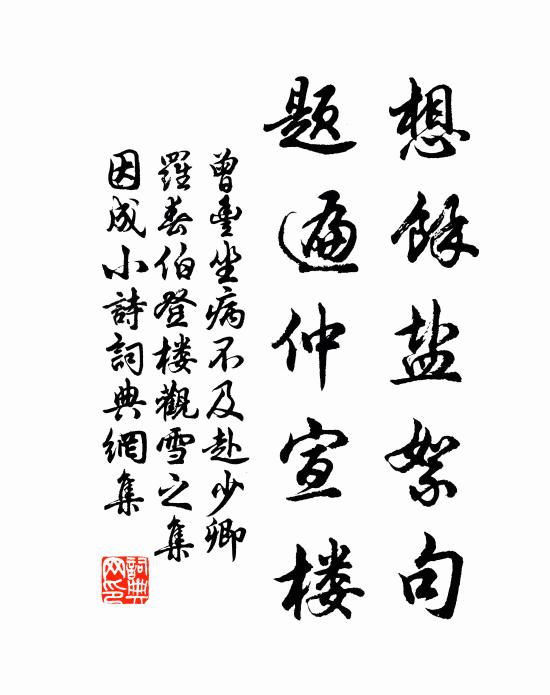 想餘盐絮句
题遍仲宣楼
曾豐坐病不及赴少卿
羅春伯登楼觀雪之集
因成小詩詞典網集
詞典网印